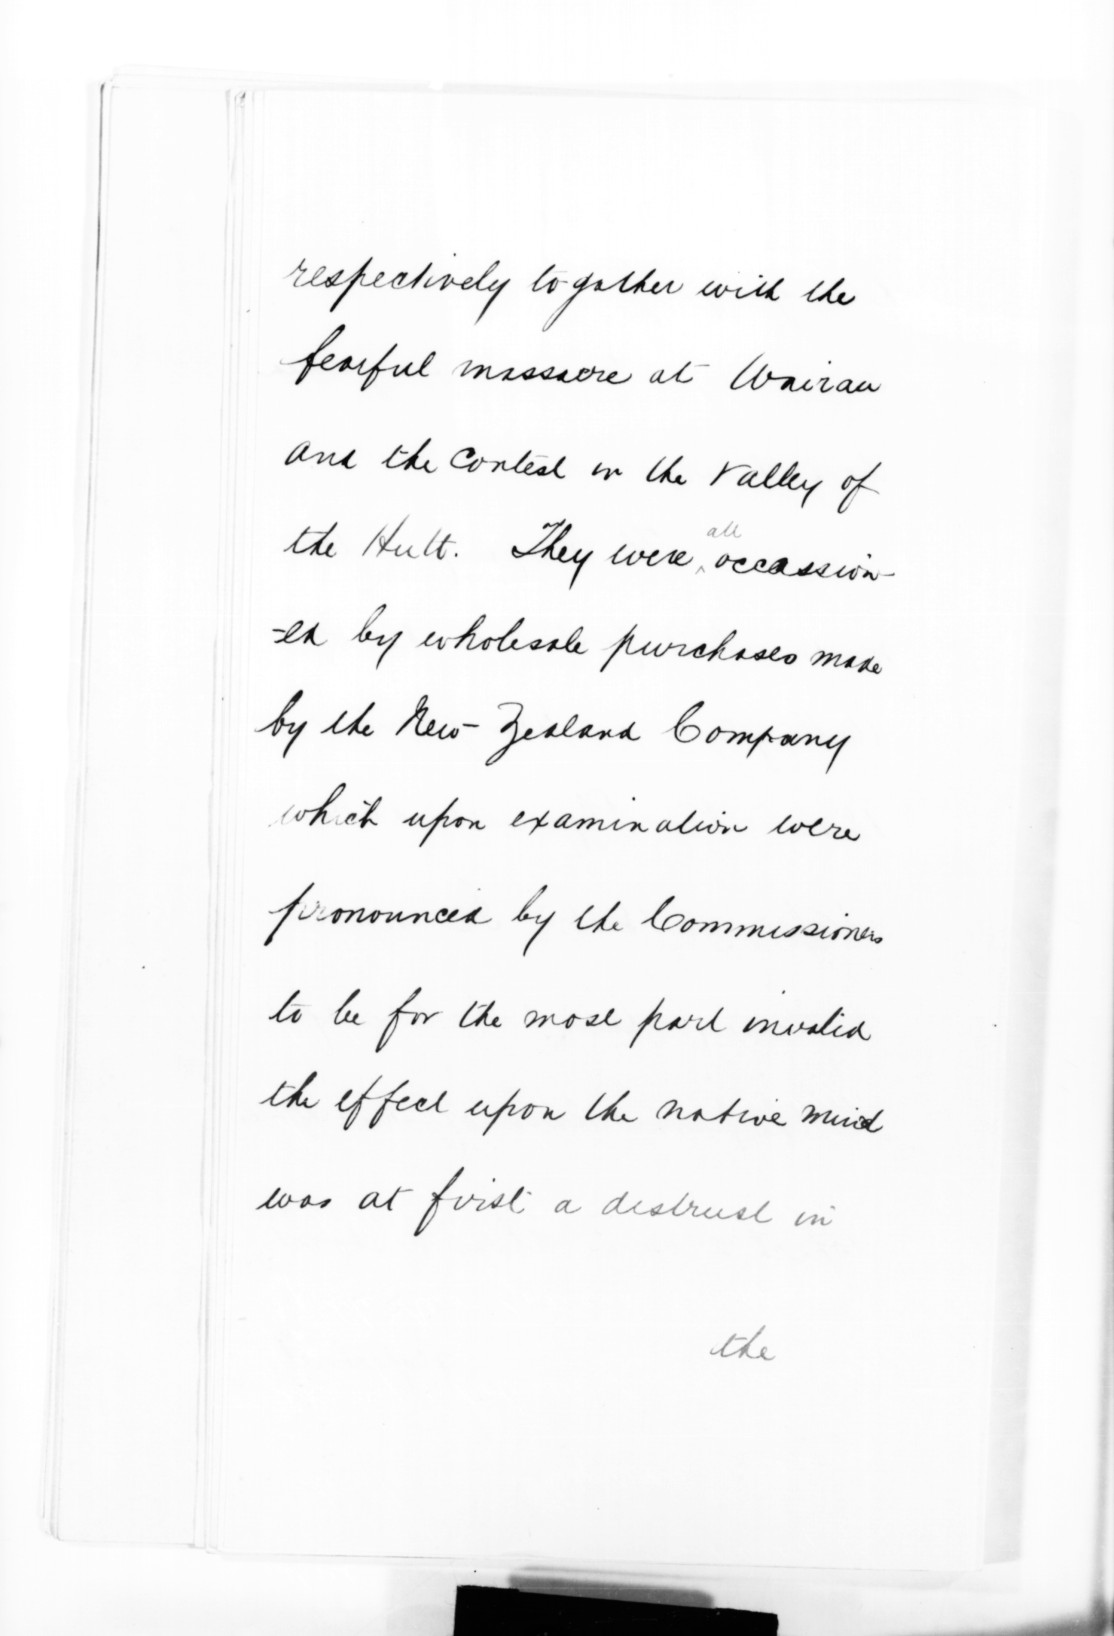 respectively together with the
fearful massacre at Wairau
and the Contest in the Valley of
the Hutt. They were all occassion-
=ed by wholesale purchases made
by the New Zealand Company
which upon examination were
pronounced by the Commissioners
to be for the most part invalid
the effect upon the native mind
was at first a distrust in
the